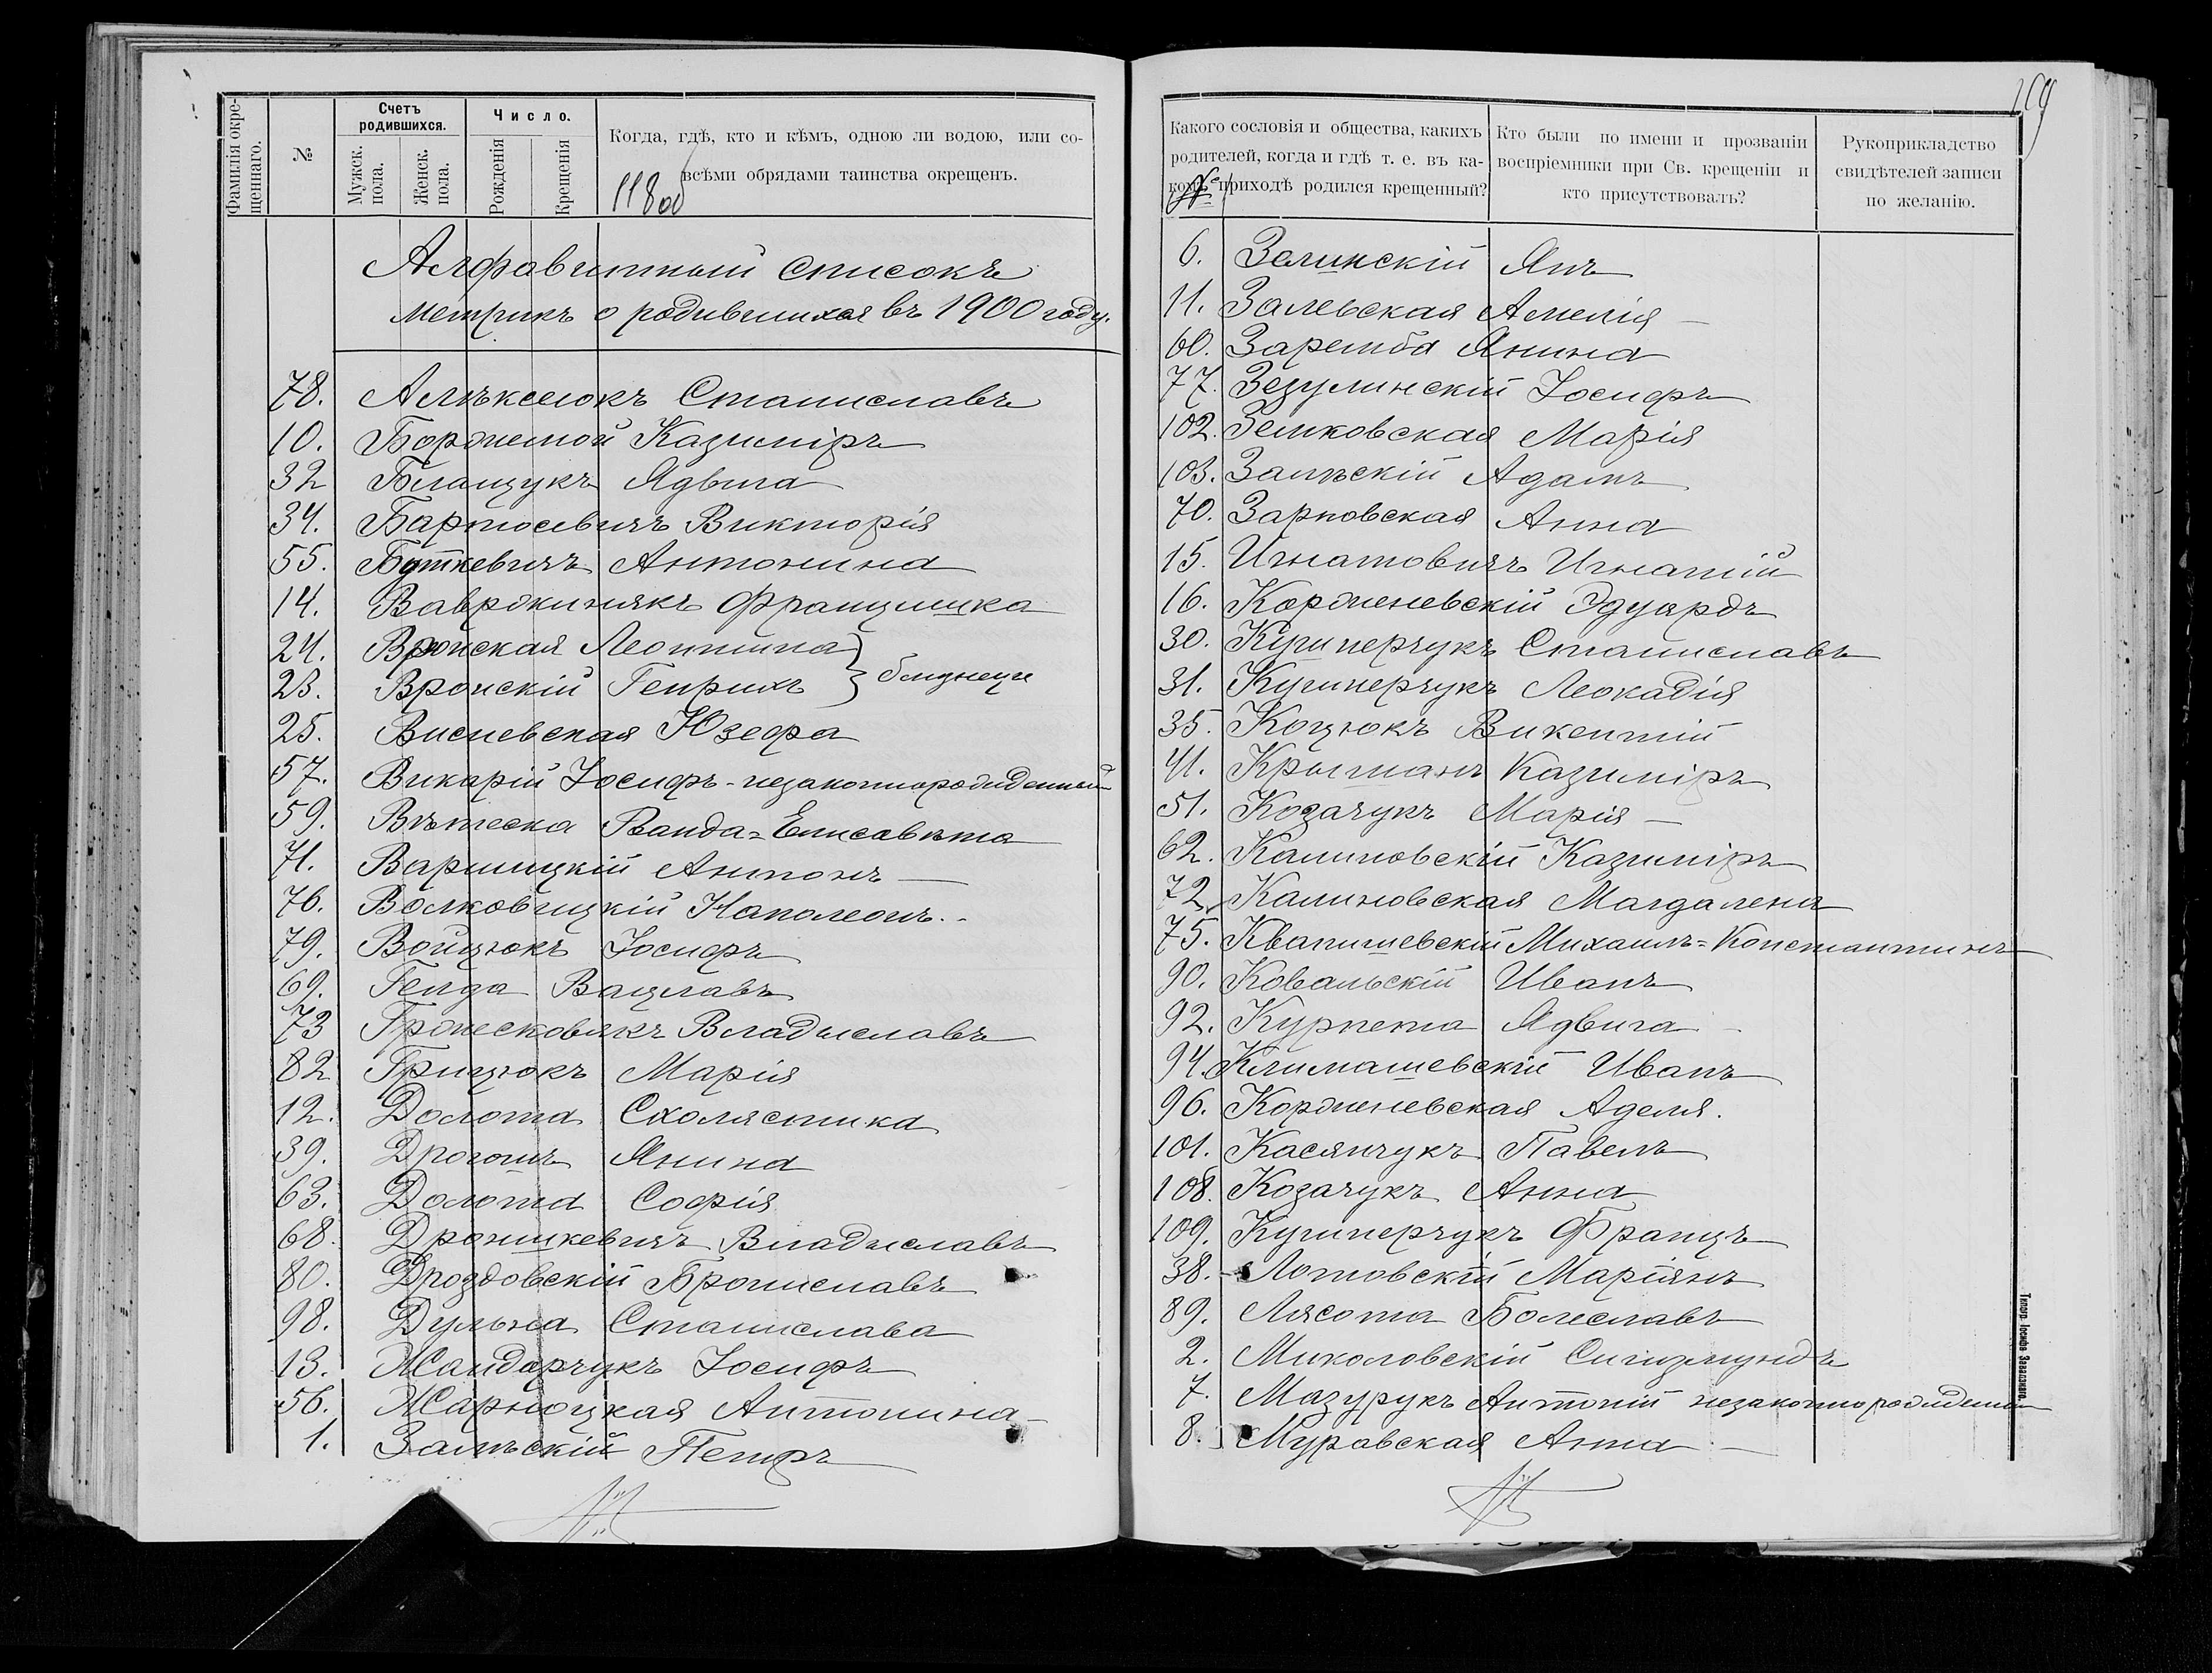 Фамилія окре-
щеннаго.
№
Счетъ
родившихся.
Мужск.
пола.
Женск.
пола.
Число.
Рожденія
Крещенія
Когда, гдѣ, кто и кѣмъ, одною ли водою, или со-
всѣми обрядами таинства окрещенъ.
Алфавитный списокъ
метрикъ о родившихся въ 1900 году.
78. Алѣксеюкъ Станиславъ
10. Боржемой Казиміръ
32 Блащукъ Ядвига
34. Бартосевичъ Викторія
55. Буткевичъ Антонина
14. Вавржинякъ Францишка
24. Вронская Леонтина
23. Вронскій Генрихъ } близнецы
25. Висневская Юзефа
57. Викарій Іосифъ - незаконнорожденный
59. Вѣтеска Ванда-Елисавета
71. Варшицкій Антонъ
76. Волковицкій Наполеонъ
79. Войцюкъ Іосифъ
69. Генда Вацлавъ
73 Гржесковякъ Владыславъ
82 Грицюкъ Марія
12. Долота Схолястика
39. Дрогошъ Янина
63. Долота Софія
68. Дроншкевичъ Владыславъ
80. Дроздовскій Брониславъ
98. Дульна Станислава
13. Жандарчукъ Іосифъ
56. Жарноцкая Антонина
1. Залѣскій Петръ
199
Какого сословія и общества, какихъ
родителей, когда и гдѣ т. е. въ ка-
комъ приходѣ родился крещенный?
Кто были по имени и прозваніи
воспріемники при Св. крещеніи и
кто присутствовалъ?
Рукоприкладство
свидѣтелей записи
по желанію.
№
6. Залинскій Янъ
11. Залевская Амелія
60. Заремба Янина
77. Зезулинскій Іосифъ
102. Земковская Марія
103. Залѣскій Адамъ
70. Зарновская Анна
15. Игнатовичъ Игнатій
16. Корженевскій Эдуардъ
30. Кушнерчукъ Станиславъ
31. Кушнерчукъ Леокадія
35. Коцюкъ Викентій
41. Крышанъ Казиміръ
51. Козачукъ Марія
62. Калиновскій Казиміръ
72. Калиновская Магдалена
75. Квапишевскій Михаилъ-Константинъ
90. Ковальскій Иванъ
92. Курпета Ядвига
94. Климашевскій Иванъ
96. Корженевская Аделя.
101. Касянчукъ Павелъ
108. Козачукъ Анна
109. Кушнерчукъ Францъ
38. Лотовскій Маріянъ
89. Лясота Болеславъ
2. Миколовскій Сигизмундъ
7. Мазурукъ Антоній незаконнорожденн
8. Муравская Анна
Типогр. Іосифа Завадзкаго.